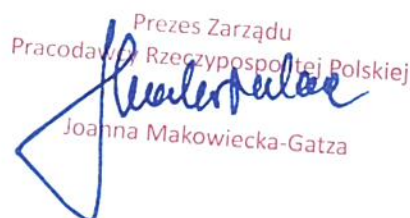 Prezes Zarządu
Pracodawcy Rzeczypospolitej Polskiej
Joanna Makowiecka-Gatza